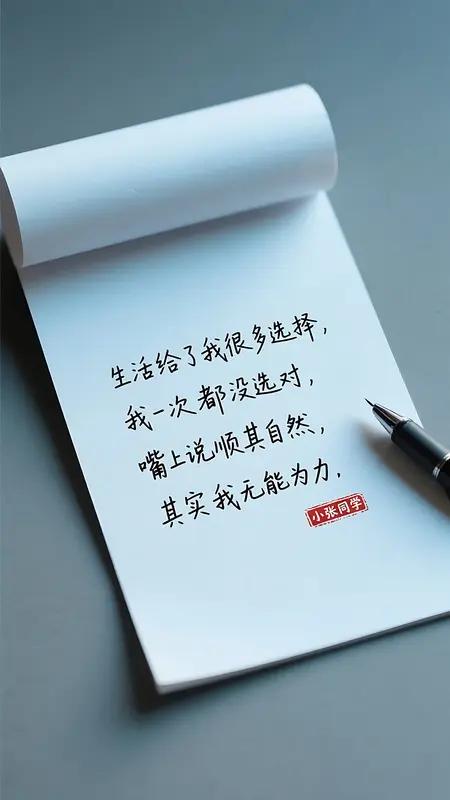 生活给了我很多选择，
我一次都没选对，
嘴上说顺其自然，
其实我无能为力.
小张同学